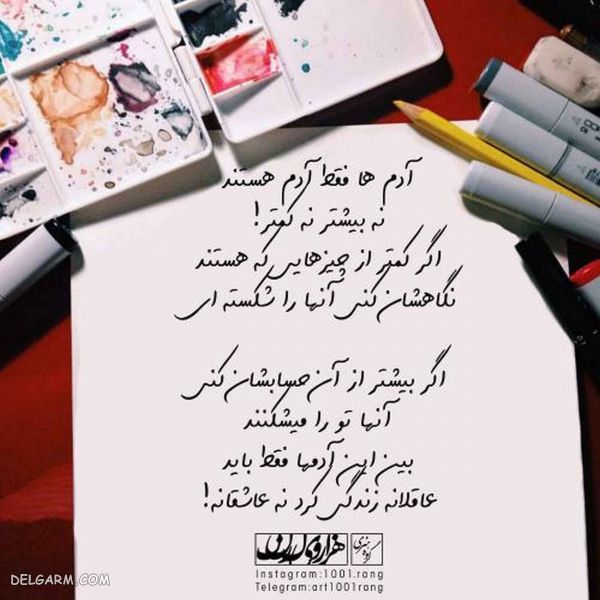 آدم ها فقط آدم هستند
نه بیشتر نه کمتر!
اگر کمتر از چیزهایی که هستند
نگاهشان کنی آنها را شکسته ای
اگر بیشتر از آن حسابشان کنی
آنها تو را میشکنند
بین این آدمها فقط باید
عاقلانه زندگی کرد نه عاشقانه!
گروه هنری
Instagram:1001.rang
Telegram:art1001rang
DELGARM.COM